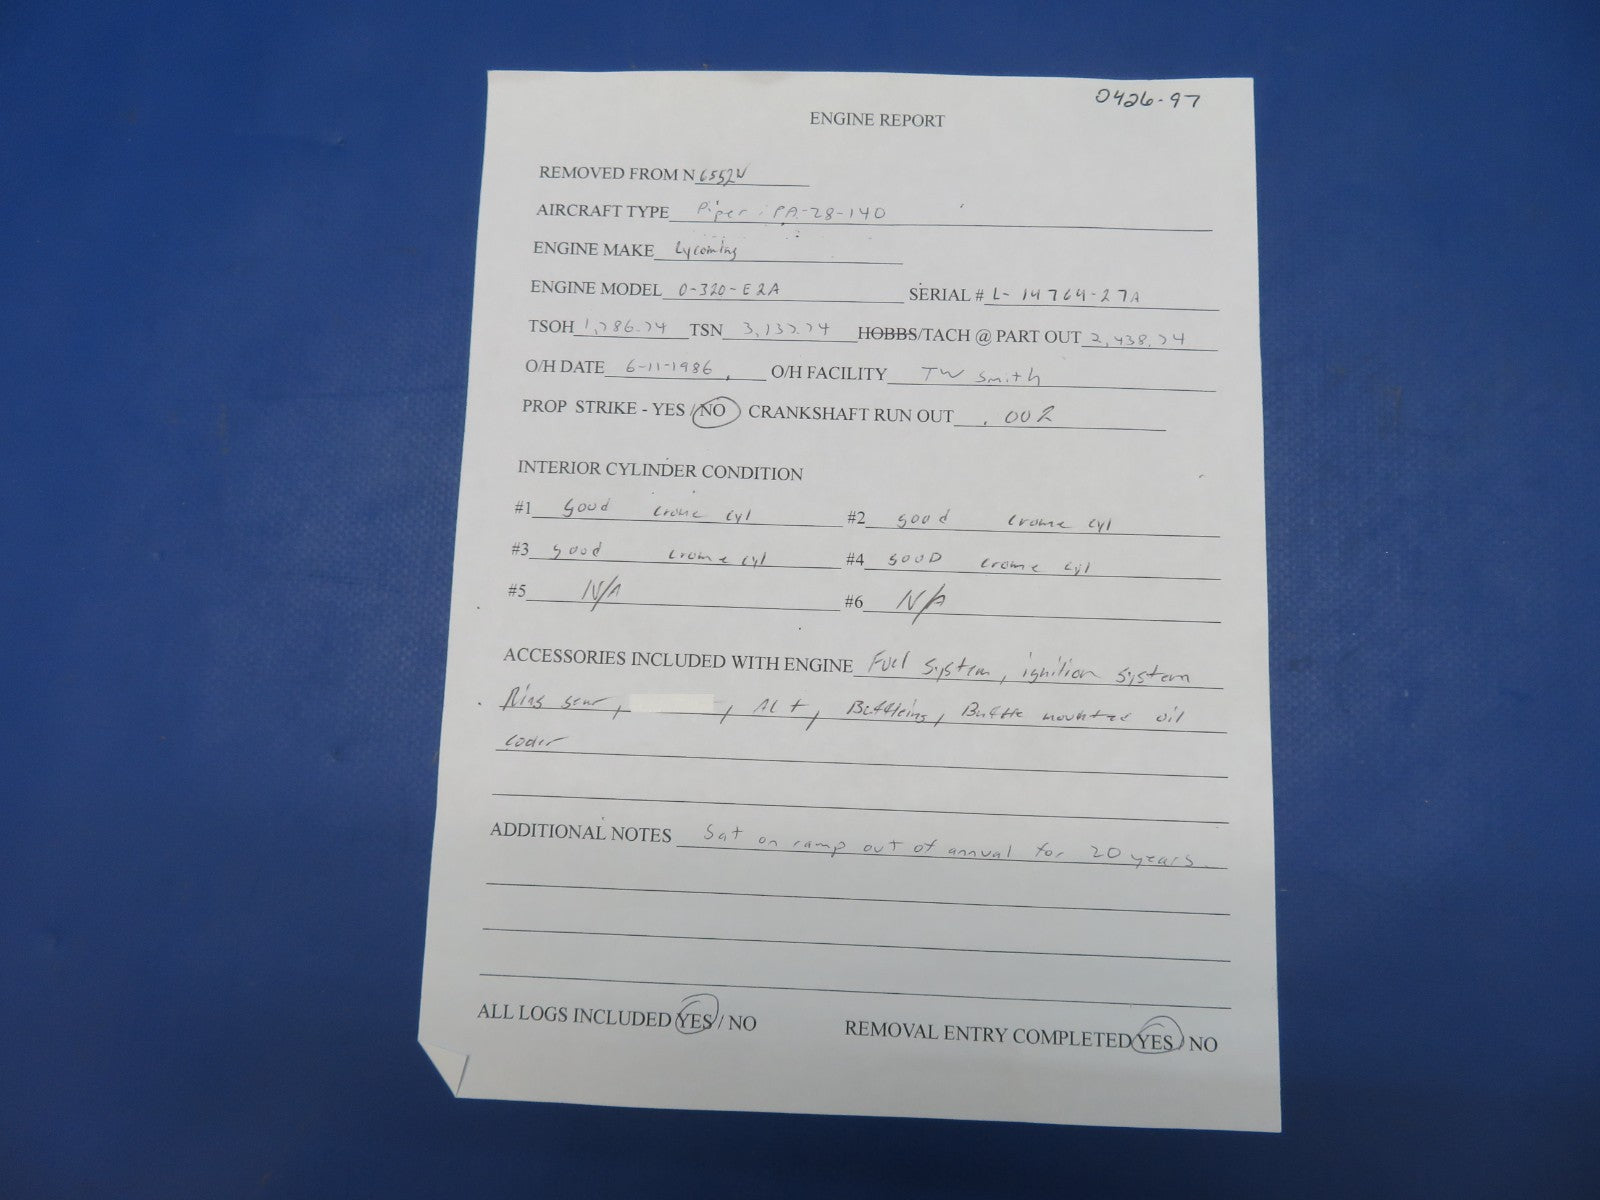 0426-97
ENGINE REPORT
REMOVED FROM N 6552W
AIRCRAFT TYPE Piper PA-28-140
ENGINE MAKE Lycoming
ENGINE MODEL O-320-E2A SERIAL # L-14764-27A
TSOH TSN HOBBS/TACH @ PART OUT 2,438.74
O/H DATE 6-11-1986 O/H FACILITY TW Smith
PROP STRIKE - YES / NO CRANKSHAFT RUN OUT .002
INTERIOR CYLINDER CONDITION
#1 good crome cyl #2 good crome cyl
#3 good crome cyl #4 gooD crome cyl
#5 N/A #6 N/A
ACCESSORIES INCLUDED WITH ENGINE Fuel system, ignition system
Ring gear, , Alt, Baffleing, Baffle mounted oil
cooler
ADDITIONAL NOTES Sat on ramp out of annual for 20 years
ALL LOGS INCLUDED YES / NO REMOVAL ENTRY COMPLETED YES / NO